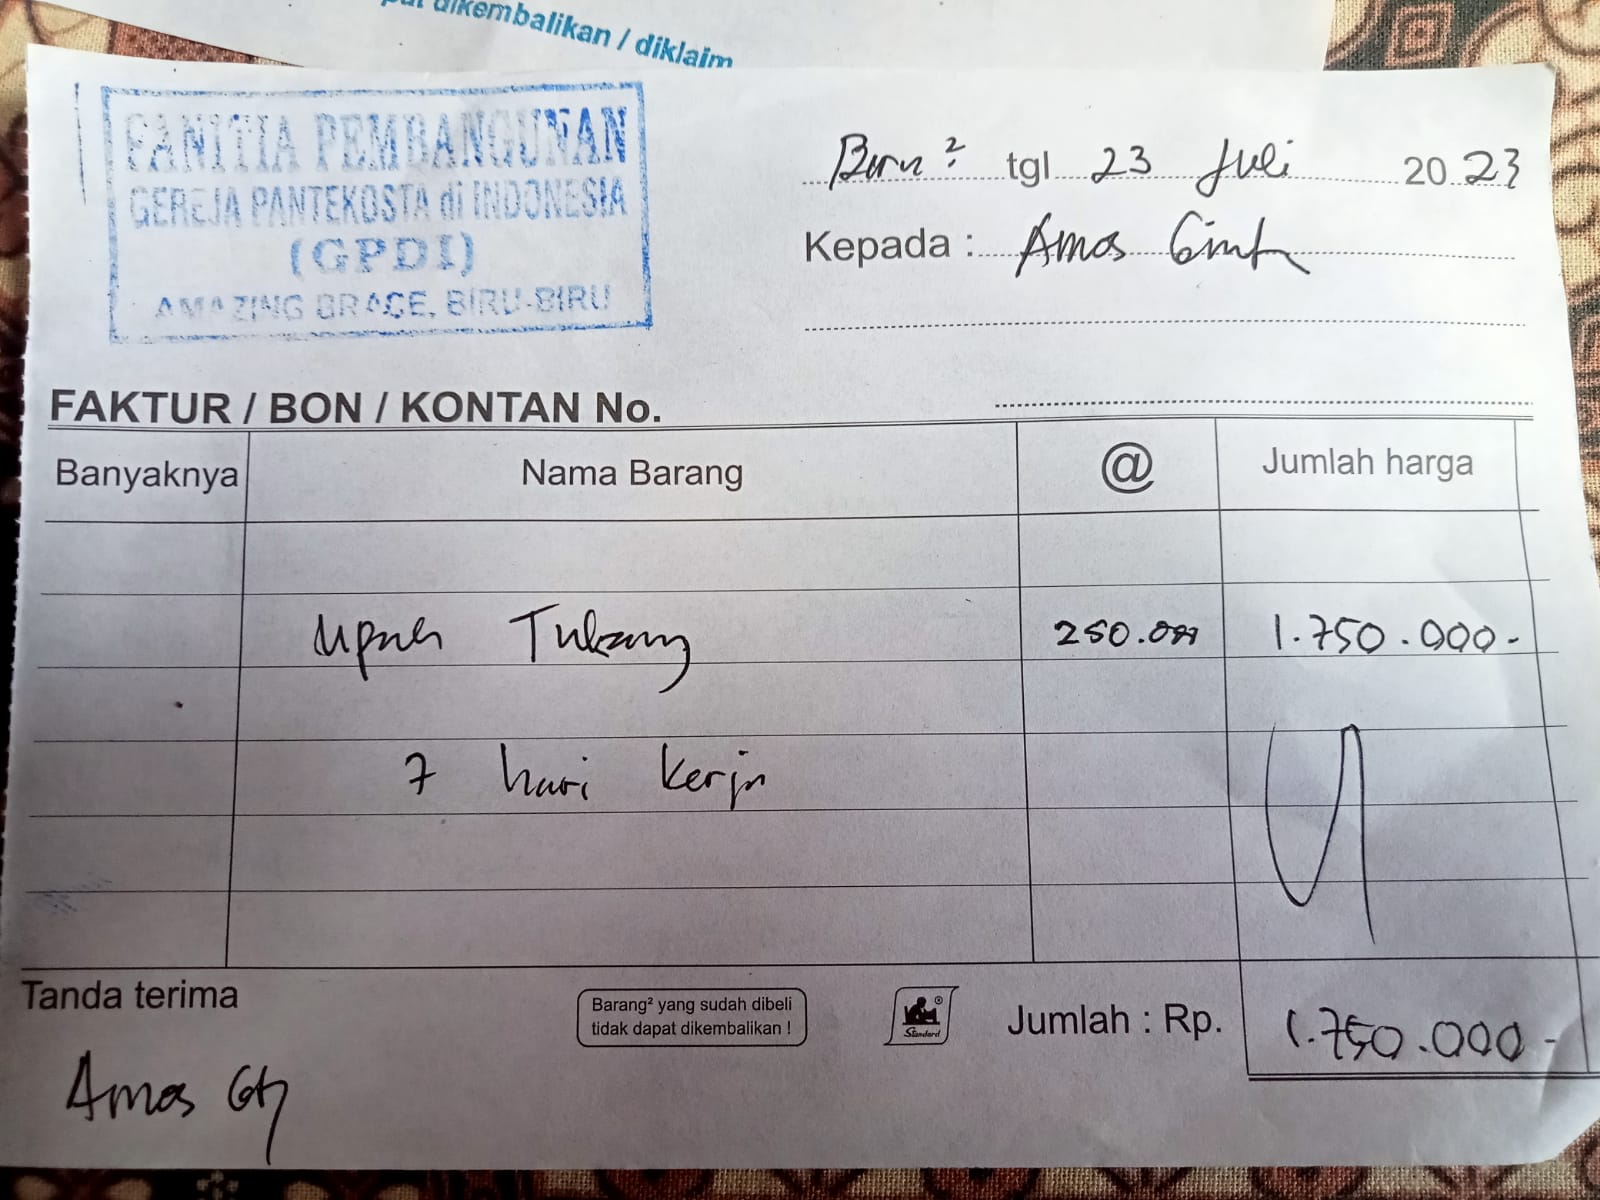 dikembalikan / diklaim
PANITIA PEMBANGUNAN
GEREJA PANTEKOSTA di INDONESIA
(GPDI)
AMAZING GRACE, BIRU-BIRU
Biru² tgl 23 Juli 2023
Kepada : Amos
FAKTUR / BON / KONTAN No.
Banyaknya Nama Barang @ Jumlah harga
Upah Tukang 250.000 1.750.000-
7 hari kerja
Tanda terima Barang² yang sudah dibeli
tidak dapat dikembalikan !
Standard
Jumlah : Rp. 1.750.000-
Amos